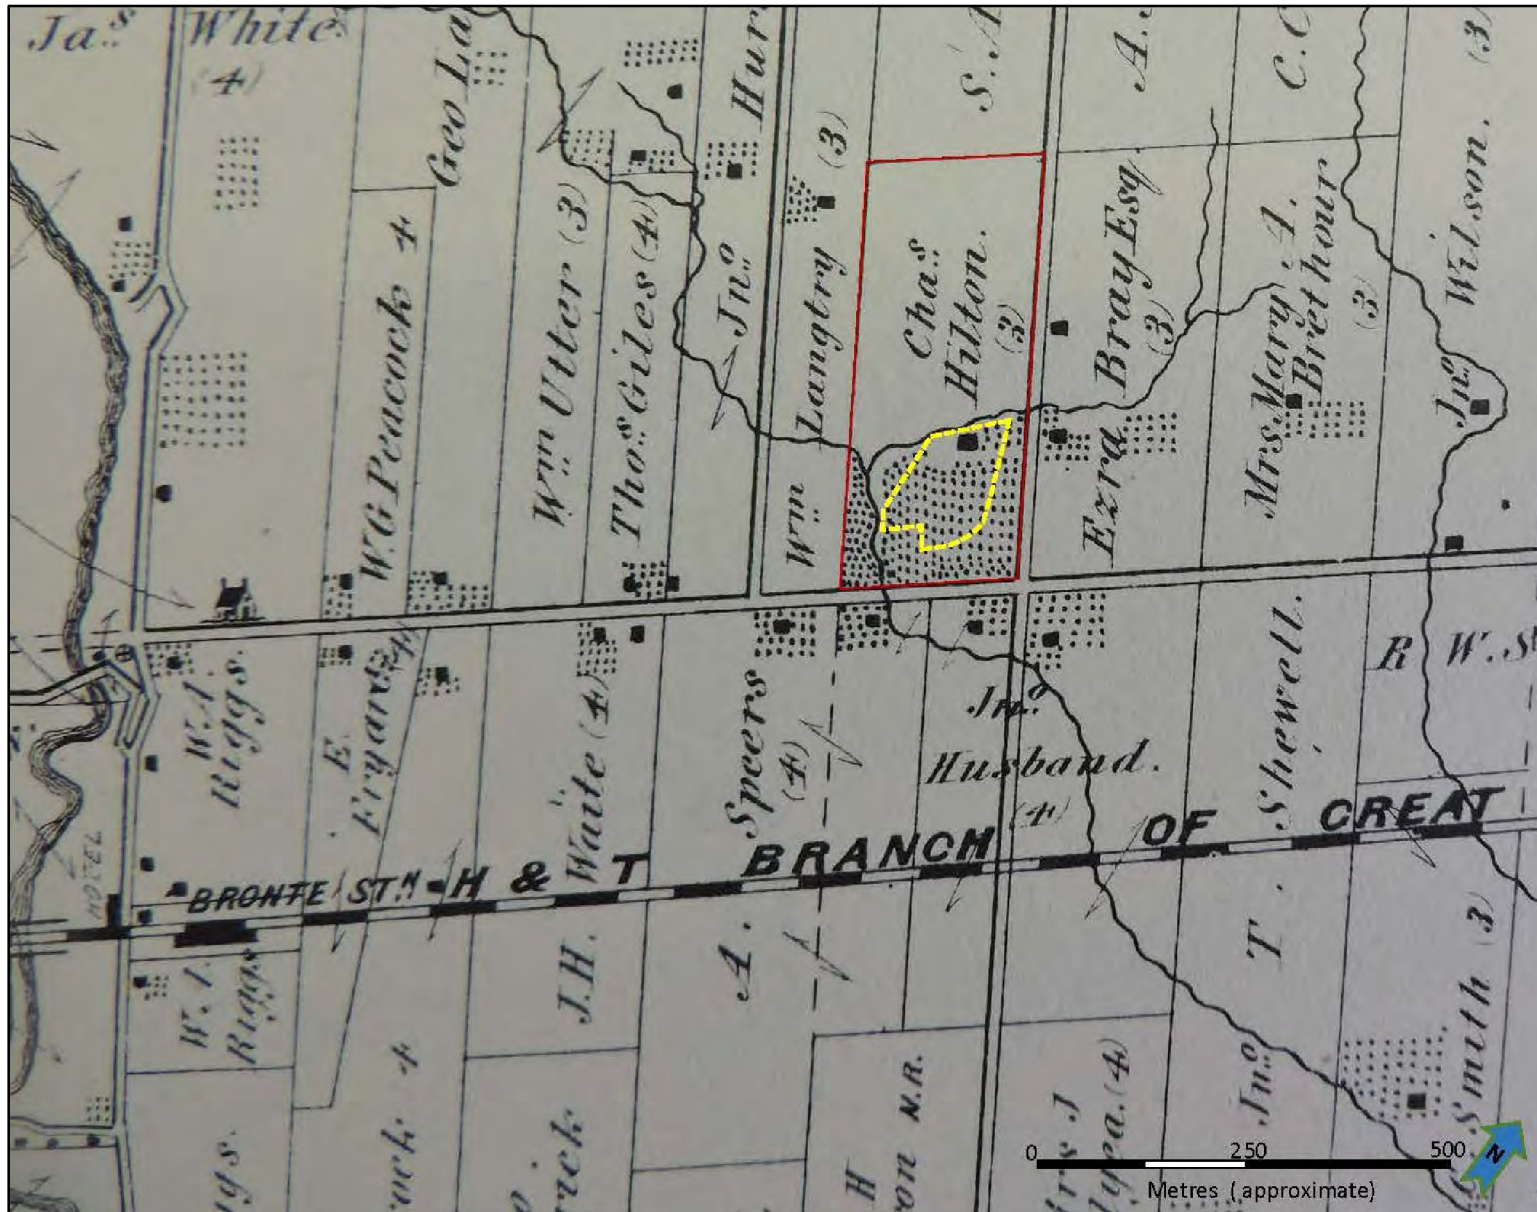 Ja.s White.
(4)
Geo La
Hur
(3)
S. A
A.
C. C
(3)
W.G Peacock 4
Wm. Utter (3)
Thos. Giles (4)
Jno.
Wm. Langtry
Chas.
Hilton.
(3)
Ezra Bray Esq.
(3)
Mrs. Mary A.
Brethour
(3)
Jno. Wilson.
W.A.
Riggs.
E
Fryars (4)
Waite (4)
J.H.
Speers
(4)
A.
Jno.
Husband.
(4)
Shewell.
T.
R W. S
BRONTE STN. H & T BRANCH OF GREAT
W. A.
Riggs
rock 4
rick
H
on N.R.
rs J
lyea. (4)
Jno.
Smith (3)
0 250 500
Metres (approximate)
N